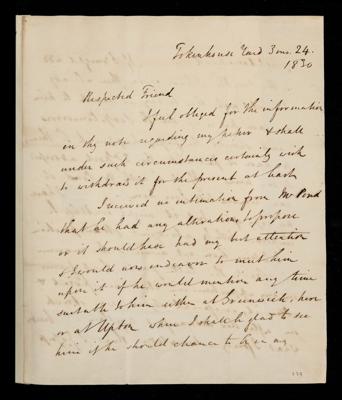 Tokenhouse Yard 3 mo. 24.
1830
Respected Friend
I feel obliged for the information
in thy note regarding my paper & shall
under such circumstances certainly wish
to withdraw it for the present at least
I received no intimation from Mr Pond
that he had any alterations to propose
or it should have had my best attention
& I would now endeavor to meet him
upon it if he would mention any time
suitable to him either at Greenwich, here
or at Upton where I shall be glad to see
him if he should chance to be in my